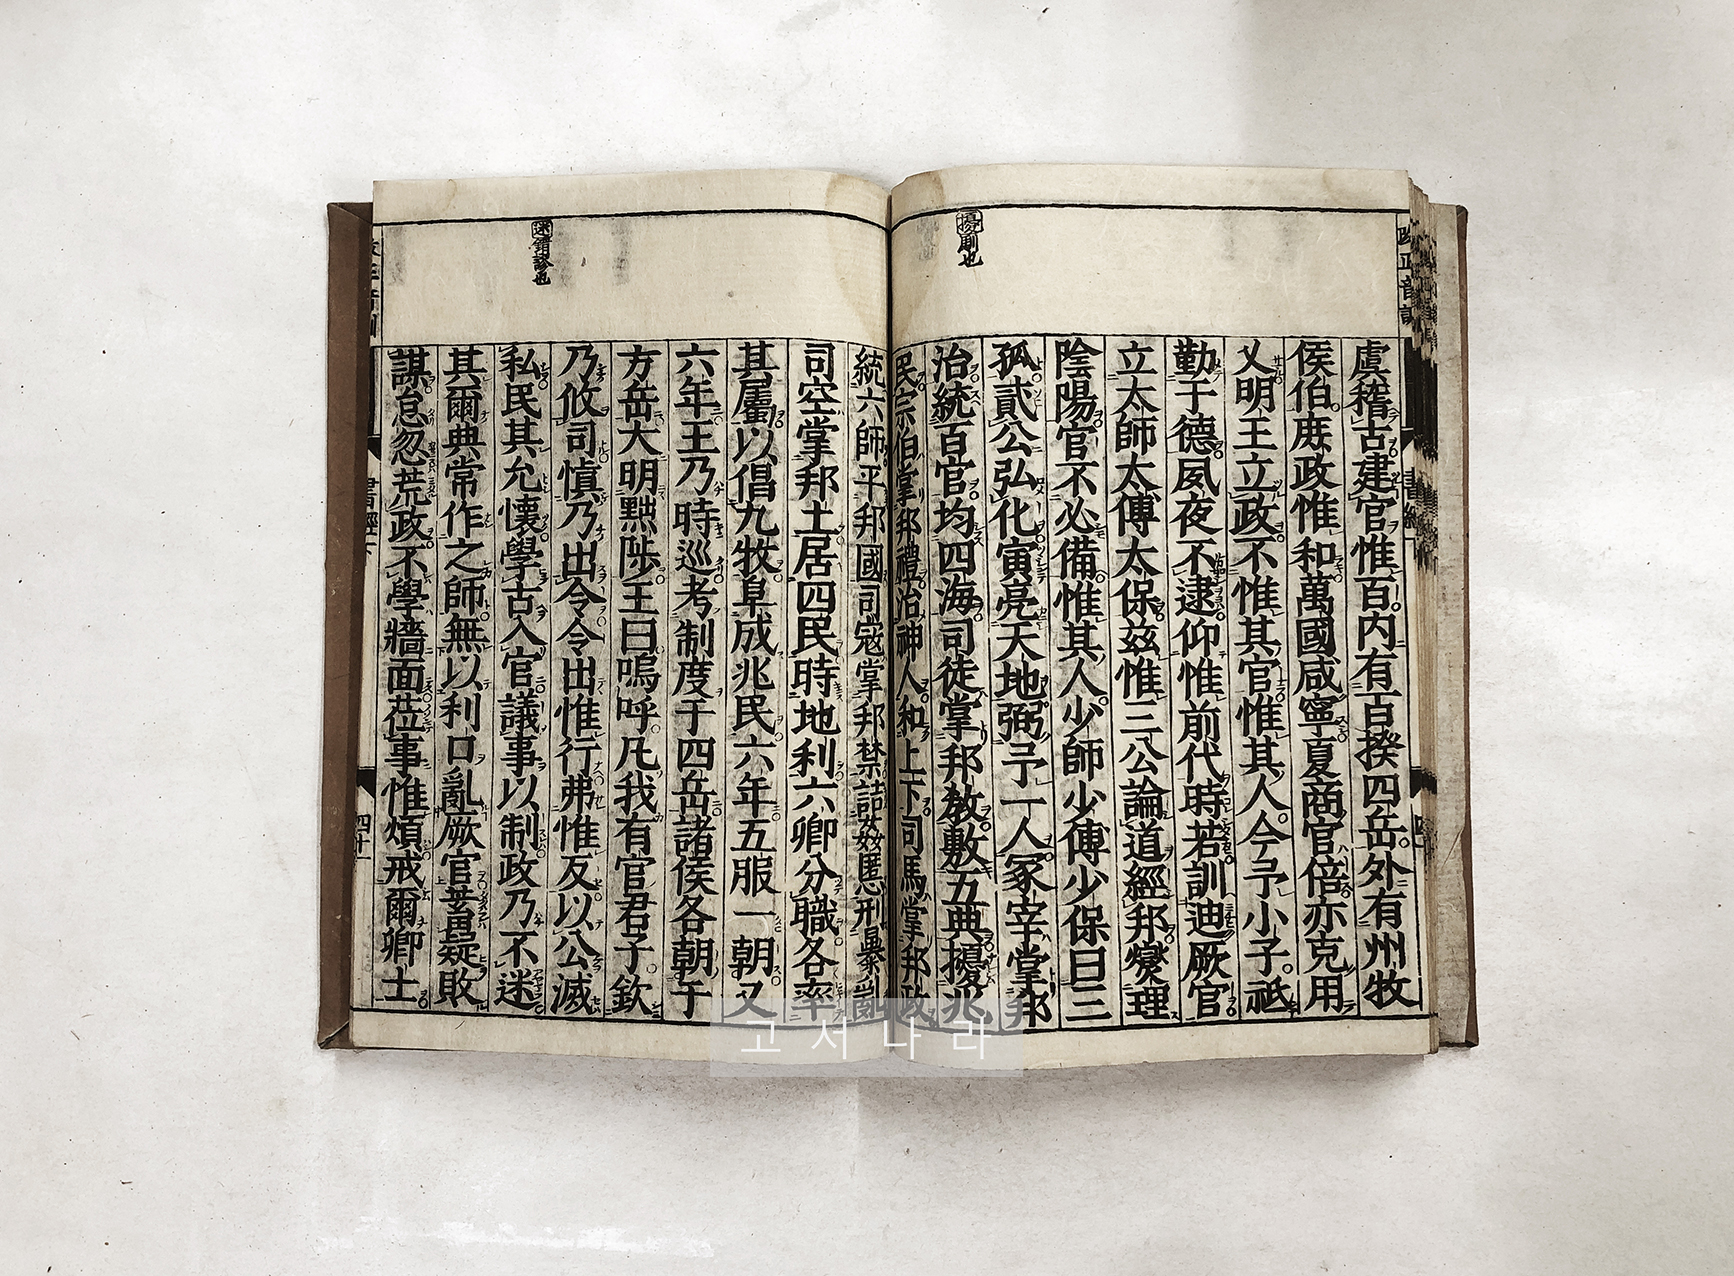 擾馴也
虞稽古建官惟百内有百揆四岳外有州牧
侯伯庶政惟和萬國咸寧夏商官倍亦克用
乂明王立政不惟其官惟其人今予小子祗
勤于德夙夜不逮仰惟前代時若訓迪厥官
立太師太傅太保茲惟三公論道經邦燮理
陰陽官不必備惟其人少師少傅少保曰三
孤貳公弘化寅亮天地弼予一人冢宰掌邦
治統百官均四海司徒掌邦敎敷五典擾兆
民宗伯掌邦禮治神人和上下司馬掌邦政
迷錯謬也
統六師平邦國司寇掌邦禁詰姦慝刑暴亂
司空掌邦土居四民時地利六卿分職各率
其屬以倡九牧阜成兆民六年五服一朝又
六年王乃時巡考制度于四岳諸侯各朝于
方岳大明黜陟王曰嗚呼凡我有官君子欽
乃攸司慎乃出令令出惟行弗惟反以公滅
私民其允懷學古入官議事以制政乃不迷
其爾典常作之師無以利口亂厥官蓄疑敗
謀怠忽荒政不學牆面莅事惟煩戒爾卿士
書經下
四十一
고서나라